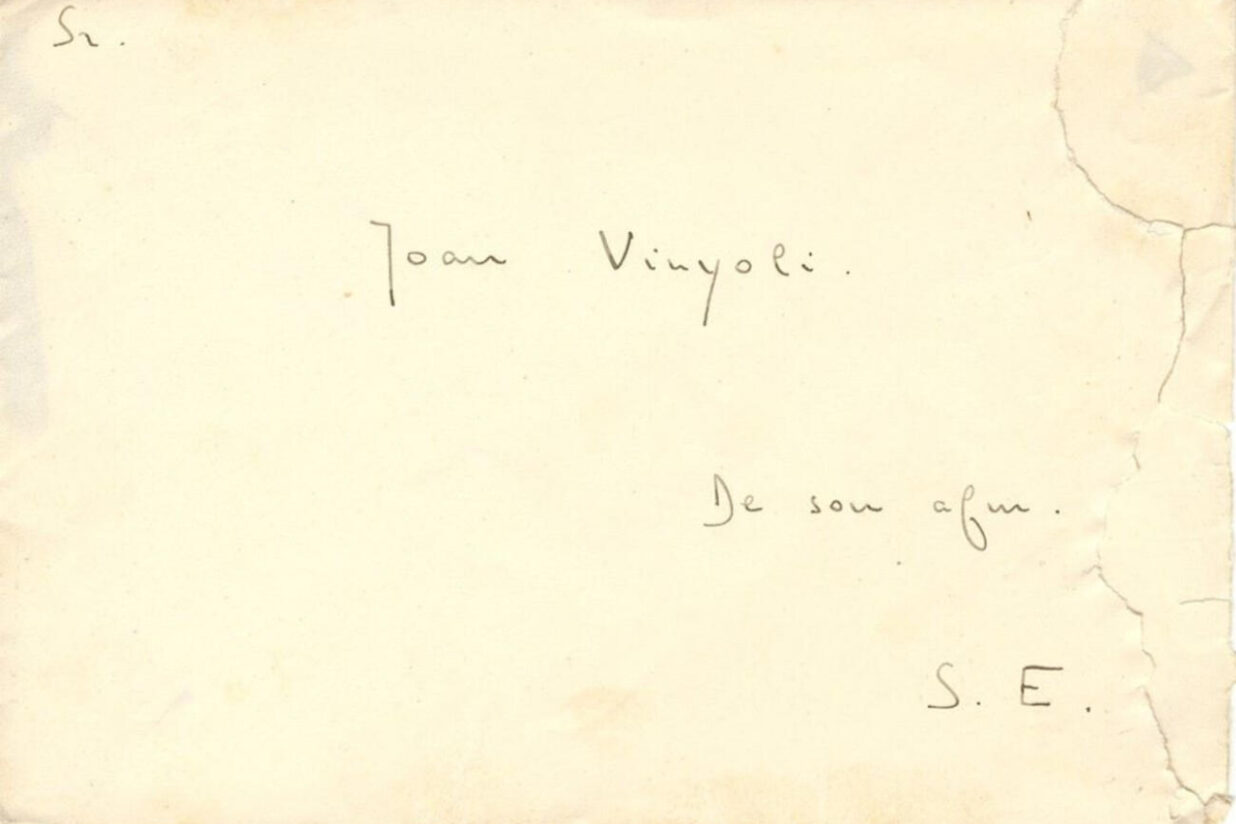 Sr.
Joan Vinyoli.
De son afm.
S. E.